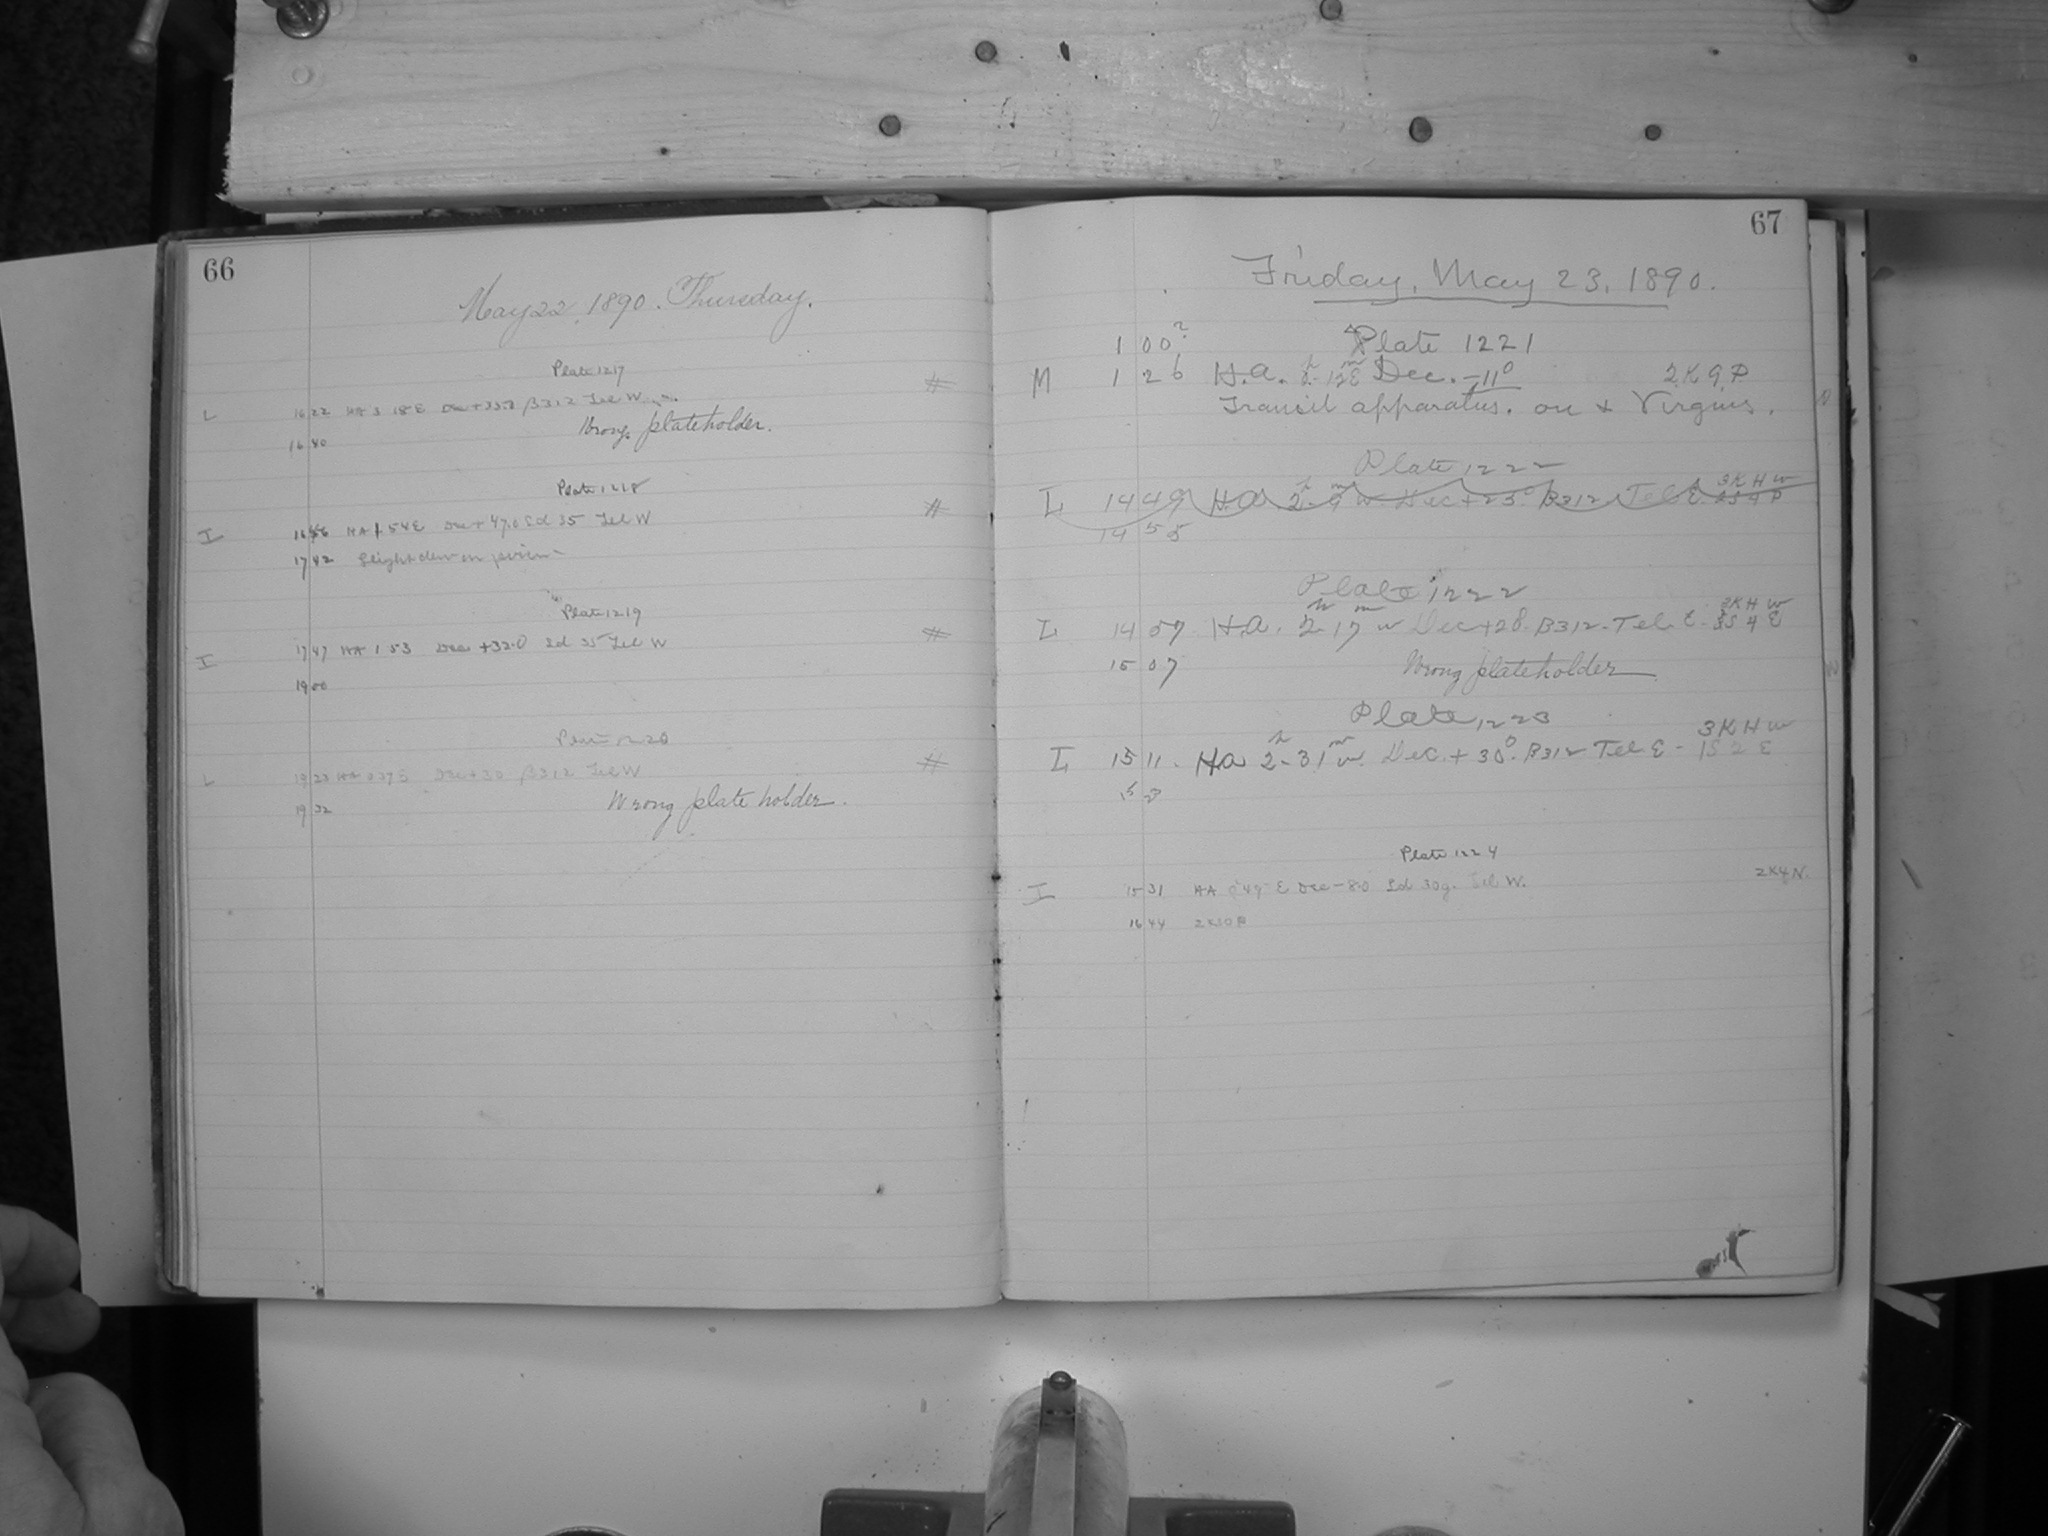 66
May 22, 1890. Thursday.
Plate 1217
L 16 22 HA 3 18 E Dec + 33.2 B312 Tel W
Wrong plateholder.
16 40
Plate 1218
I 16 56 HA 1 54 E Dec + 47.0 Ed 35 Tel W
17 42 Slight dew on
Plate 1219
I 17 47 HA 1 53 Dec +32.0 Ed 35 Tel W
19 00
Plate 1220
L 19 23 HA Dec + 30 B312 Tel W
19 32 Wrong plate holder.
67
Friday, May 23, 1890.
1 00? Plate 1221
M 1 26 H.a. Dec. -11° 2 K 9 P
Transit apparatus. on Virginis.
Plate 1222
L 14 49 H.a. 2h 9m w Dec + 25° B312 Tel E. 3 K H W
14 55
Plate 1222
L 14 57 H.a. 2h 17m w Dec +28. B312. Tel. E. 3 K H W
15 07 Wrong plateholder
Plate 1223
3 K H W
L 15 11. Ha 2h 31m w. Dec. + 30°. B312 Tel E - 1S 2 E
15
Plate 1224
I 15 31 HA 0 49 E Dec -8.0 Ed 30g. Tel W. 2K4N.
16 44 2K10E